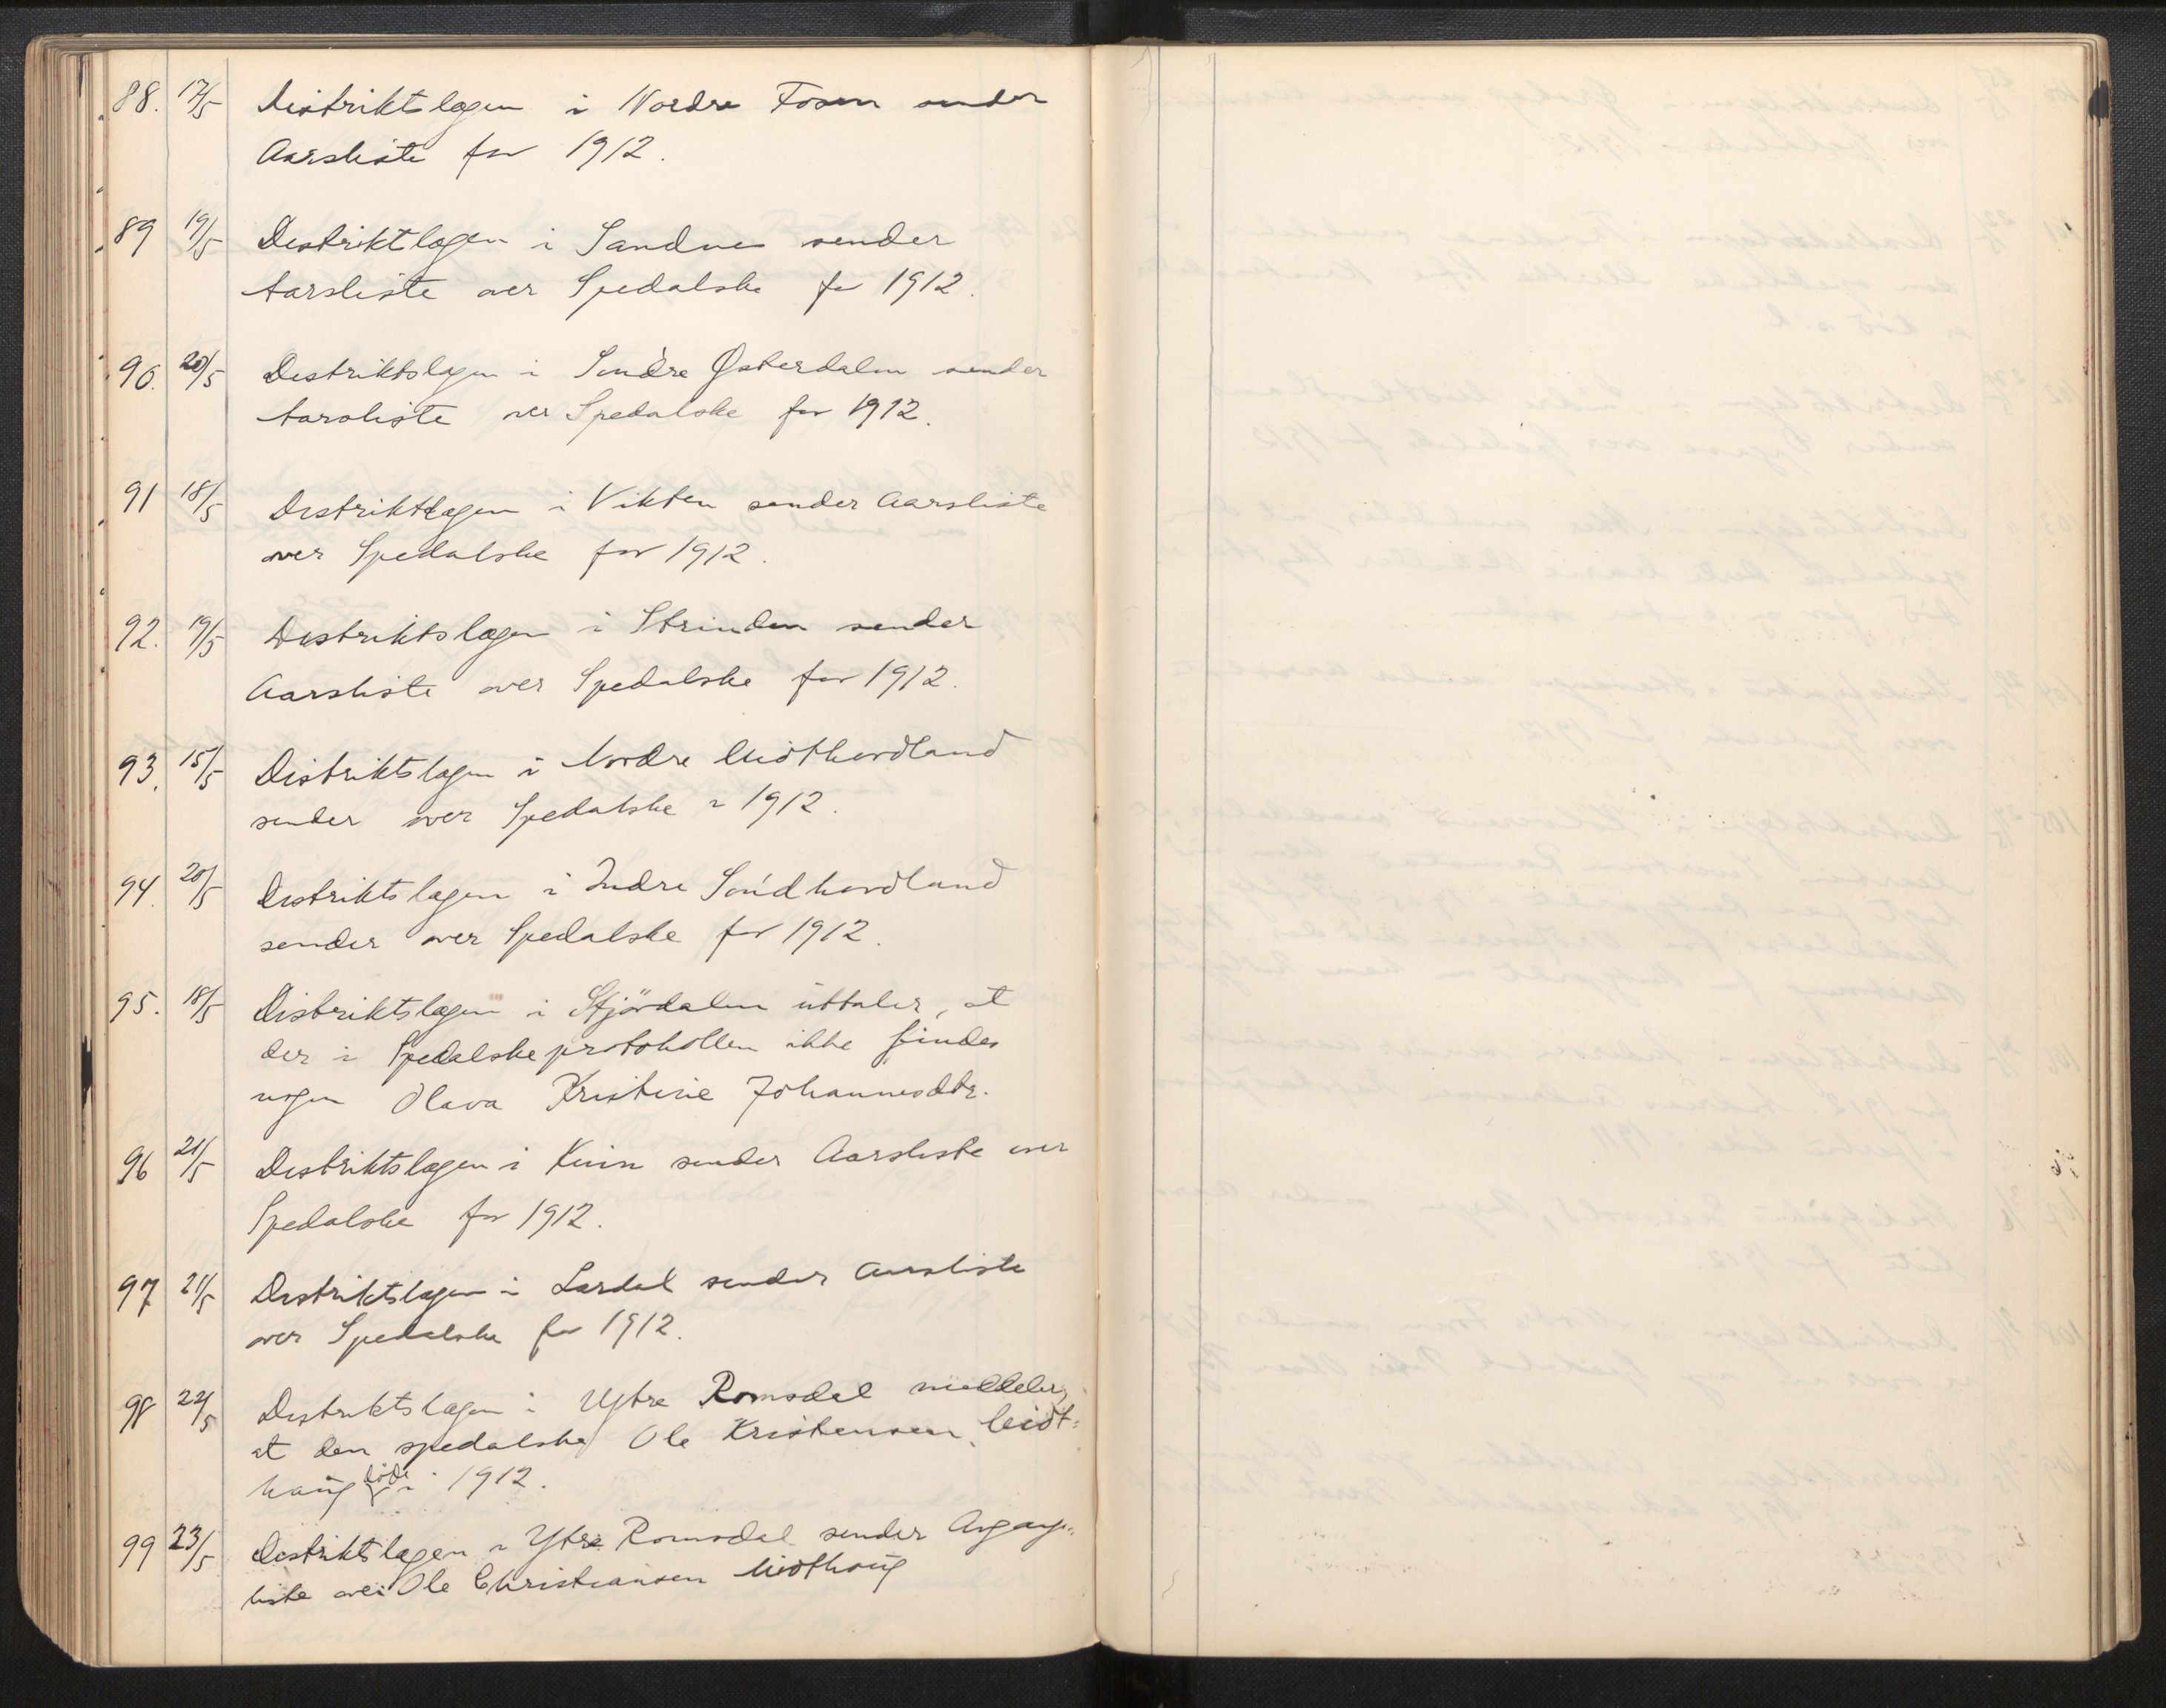 88. 17/5 Distriktslægen i Nordre Fosen sender
Aarsliste for 1912.
89 19/5 Distriktlægen i Sandnes sender
Aarsliste over Spedalske for 1912.
90. 20/5 Distriktslægen i Søndre Østerdalen sender
Aarsliste over Spedalske for 1912.
91 18/5 Distriktlægen i Vikten sender Aarsliste
over Spedalske for 1912.
92. 19/5 Distriktslægen i Strinden sender
Aarsliste over Spedalske for 1912.
93. 15/5 Distriktslægen i Nordre Midthordland
sender over Spedalske i 1912.
94. 20/5 Distriktslægen i Indre Søndhordland
sender over Spedalske for 1912.
95. 18/5 Distriktslægen i Stjördalen uttaler, at
der i Spedalskeprotokollen ikke findes
nogen Olava Kristine Johannesdtr.
96 21/5 Distriktslægen i Kinn sender Aarsliste over
Spedalske for 1912.
97 21/5 Distriktslægen i Lærdal sender Aarsliste
over Spedalske for 1912.
98 22/5 Distriktslægen i Ytre Romsdal meddeler,
at den spedalske Ole Kristensen Midt-
haug døde i 1912.
99 23/5 Distriktslægen i Ytre Romsdal sender Avgangs-
liste over Ole Christiansen Midthaug